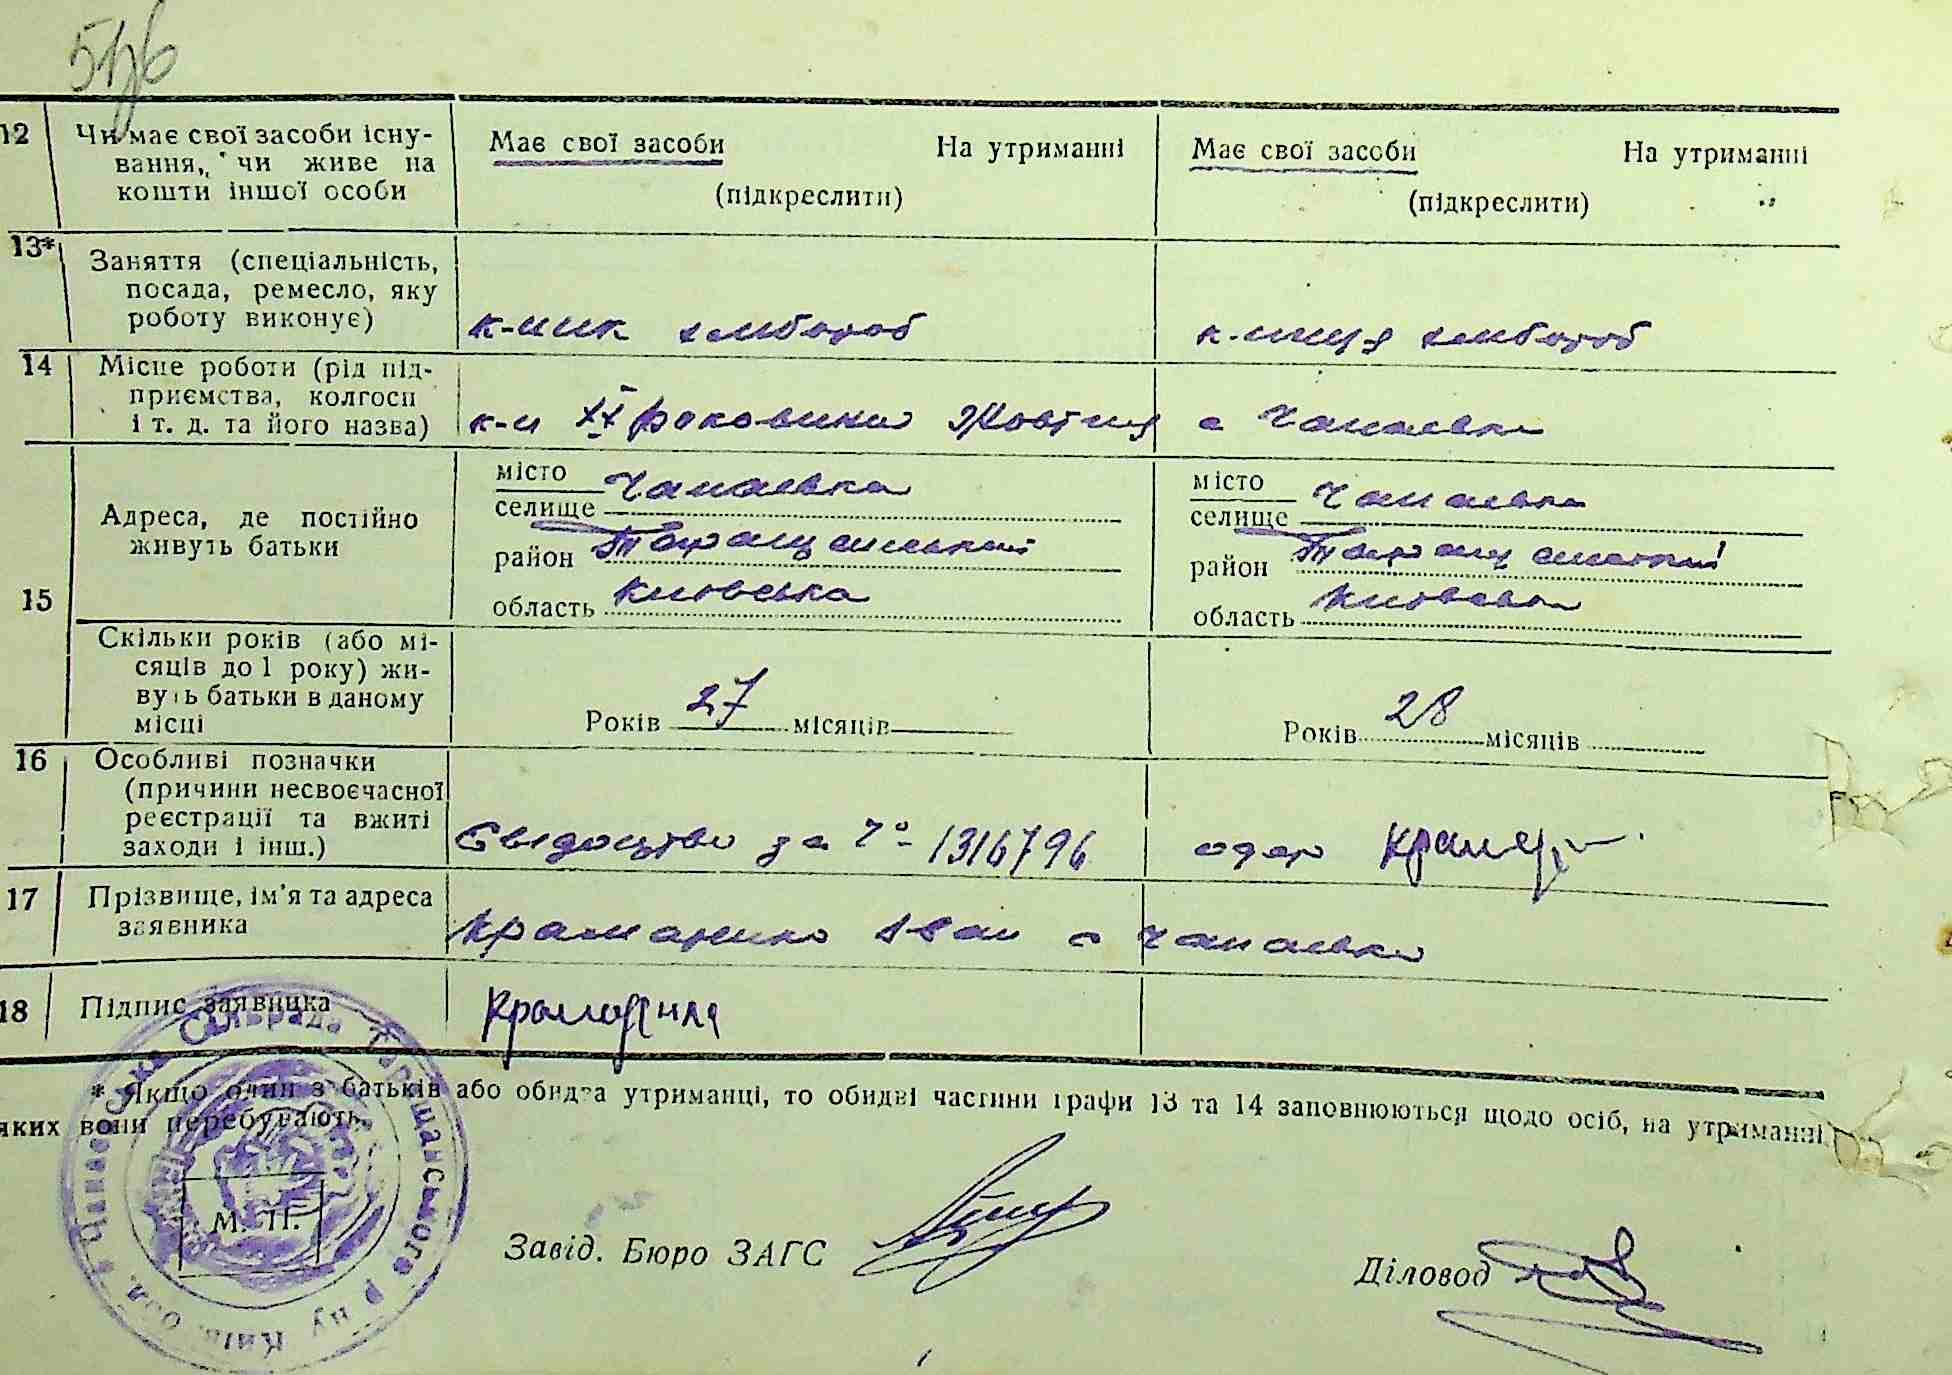 12 Чи має свої засоби існу-
вання, чи живе на
кошти іншої особи
Має свої засоби На утриманні
(підкреслити)
Має свої засоби На утриманні
(підкреслити)
13* Заняття (спеціальність,
посада, ремесло, яку
роботу виконує)
к-ник хлібороб
к-ниця хлібороб
14 Місце роботи (рід під-
приємства, колгосп
і т. д. та його назва)
к-п ХХ роковини Жовтня с Чапаєвка
15 Адреса, де постійно
живуть батьки
місто
селище Чапаєвка
район Таращанський
область Київська
місто
селище Чапаєвка
район Таращанський
область Київська
Скільки років (або мі-
сяців до 1 року) жи-
вуть батьки в даному
місці
Років 27 місяців
Років 28 місяців
16 Особливі позначки
(причини несвоєчасної
реєстрації та вжиті
заходи і інш.)
Свідоцтво за № 1316796 одер
17 Прізвище, ім'я та адреса
заявника
Крамаренко Іван с Чапаєвка
18 Підпис заявника
* Якщо один з батьків або обидва утриманці, то обидві частини графи 13 та 14 заповнюються щодо осіб, на утриманні
яких вони перебувають.
М. П.
Завід. Бюро ЗАГС
Діловод
Чапаєвська Сільрада Таращанського р-ну Київ. обл.